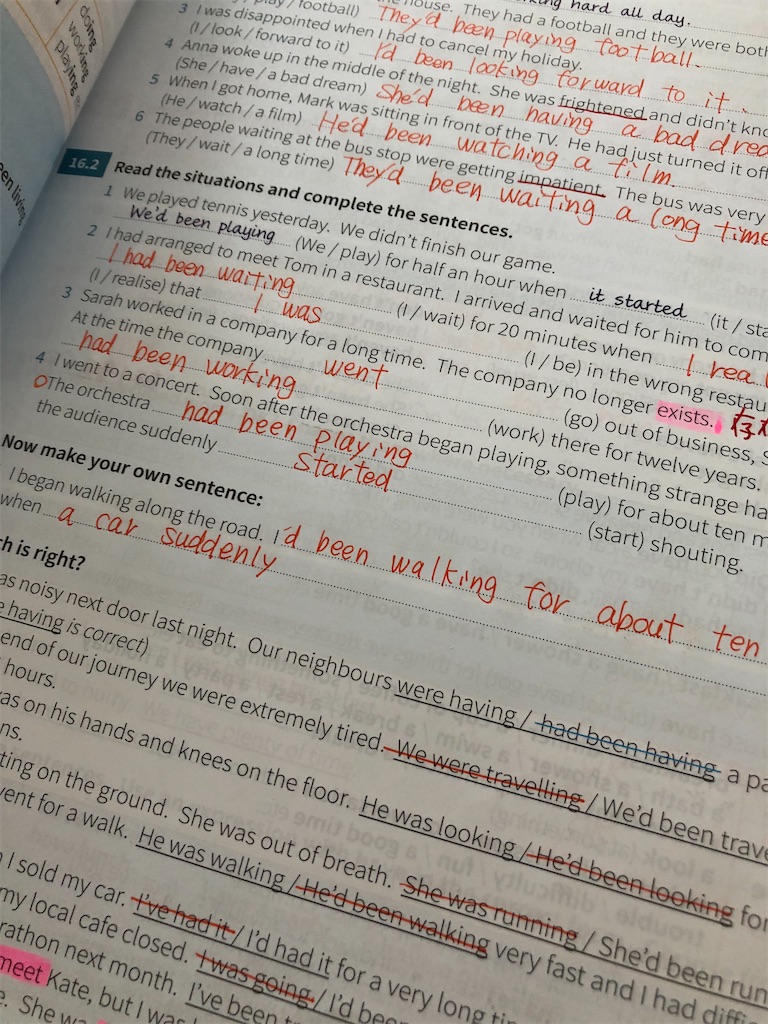 doing
working
playing
hard all day.
play / football) They'd been playing football.
house. They had a football and they were both
3 I was disappointed when I had to cancel my holiday.
(I / look / forward to it) I'd been looking forward to it.
4 Anna woke up in the middle of the night. She was frightened and didn't
(She / have / a bad dream) She'd been having a bad
5 When I got home, Mark was sitting in front of the TV. He had just turned it off
(He / watch / a film) He'd been watching a film.
6 The people waiting at the bus stop were getting impatient. The bus was very
(They / wait / a long time) They'd been waiting a long time
16.2 Read the situations and complete the sentences.
1 We played tennis yesterday. We didn't finish our game.
We'd been playing (We / play) for half an hour when it started (it /
2 I had arranged to meet Tom in a restaurant. I arrived and waited for him to
I had been waiting (I / wait) for 20 minutes when I
(I / realise) that I was (I / be) in the wrong
3 Sarah worked in a company for a long time. The company no longer exists.
At the time the company went (go) out of business,
had been working (work) there for twelve years.
4 I went to a concert. Soon after the orchestra began playing, something strange
The orchestra had been playing (play) for about ten
the audience suddenly started (start) shouting.
Now make your own sentence:
I began walking along the road. I'd been walking for about ten
when a car suddenly
is right?
noisy next door last night. Our neighbours were having / had been having a
having is correct)
end of our journey we were extremely tired. We were travelling / We'd been
hours.
on his hands and knees on the floor. He was looking / He'd been looking for
on the ground. She was out of breath. She was running / She'd been
for a walk. He was walking / He'd been walking very fast and I had
I sold my car. I've had it / I'd had it for a very long
my local cafe closed. I was going / I'd
next month. I've been
meet Kate, but I was
She